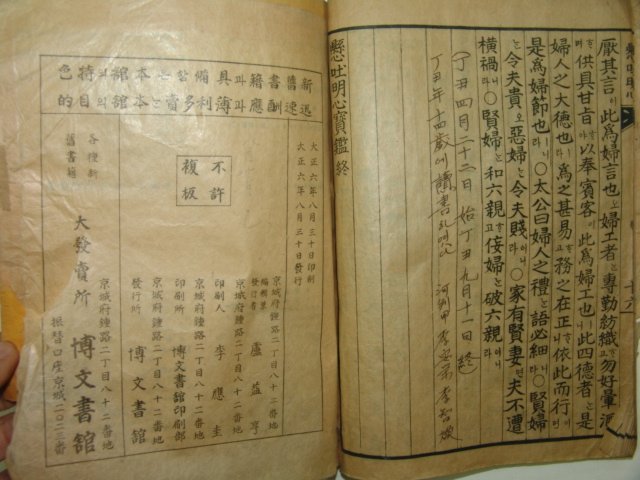 厭其言이니此爲婦言也오婦工者는專勤紡織하고勿好暈酒하고
供具甘旨하야以奉賓客이니此爲婦工也니라此四德者는是
婦人之大德也라爲之甚易하고務之在正하니依此而行이면
是爲婦節也니라○太公曰婦人之禮는語必細니라○賢婦
는令夫貴오惡婦는令夫賤이니라○家有賢妻면夫不遭
橫禍니라○賢婦는和六親하고佞婦는破六親이니라
(丁丑四月二十二日 始丁丑九月十一日 終)
丁丑年十四歲에讀書
懸吐明心寶鑑終
新舊書籍具備함은本舘의特色
迅速酬應과薄利多賣는本舘의目的
大正六年八月三十日印刷
大正六年八月三十日發行
不許複板
京城府鍾路二丁目八十二番地
編輯兼發行者 盧益亨
京城府鍾路二丁目八十二番地
印刷人 李應圭
京城府鍾路二丁目八十二番地
印刷所 博文書舘印刷部
京城府鍾路二丁目八十二番地
發行所 博文書舘
京城府鍾路二丁目八十二番地
各種新舊書籍 大發賣所 博文書舘
振替口座京城二〇二三番